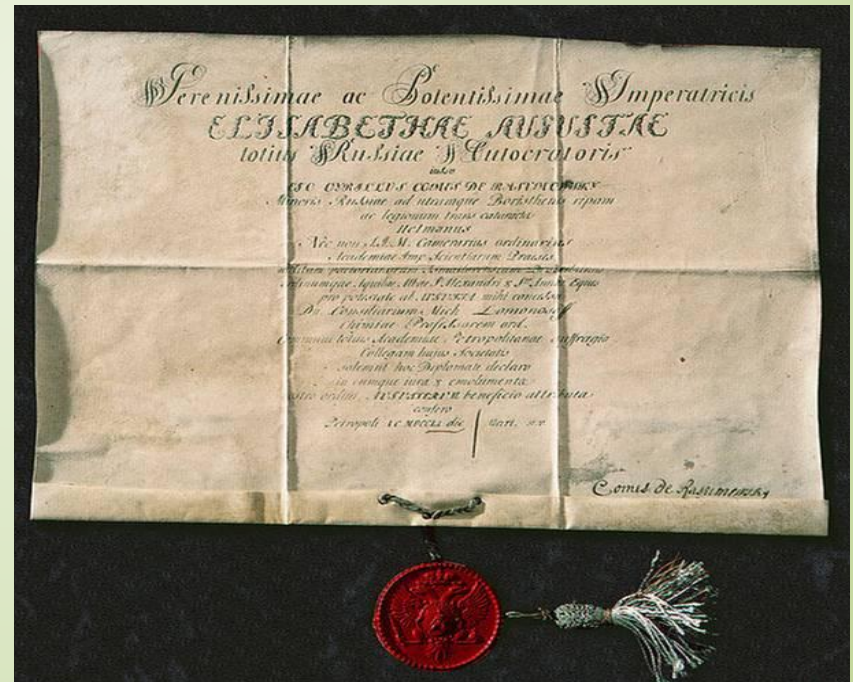 Serenissimae ac Potentissimae Imperatricis
ELISABETHAE AUGUSTAE
totius Russiae Autocratoris
iussu
EGO CYRILLUS COMES DE RASUMOWSKY
Minoris Russiae ad utramque Boristhenis ripam
ac legionum trans cataracta
Hetmanus
Nec non S.I.M. Camerarius ordinarius
Academiae Imp. Scientiarum Praeses
Aquilae Albae S. Alexandri & Stae Annae Eques
pro potestate ab AUGUSTA mihi concessa
Dn. Consiliarium Mich. Lomonosoff
Chimiae Professorem ord.
communi totius Academiae Petropolitanae suffragio
Collegam hujus Societatis
solemni hoc Diplomate declaro
in eumque iura & emolumenta
ordini AUGUSTAE beneficio attributa
confero
Petropoli die
Comes de Rasumowsky